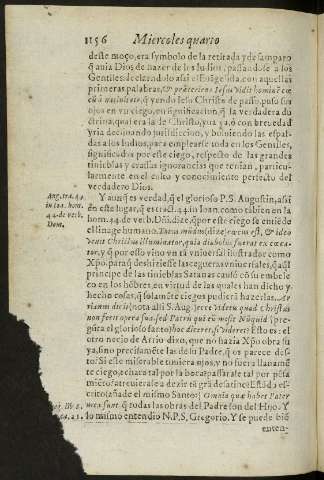 1156 Miercoles quarto
deste moço, era symbolo de la retirada y desamparo
q̃ auia Dios de hazer de los Iudios, passandose a los
Gentiles: declarandolo assi el Euãgelista, con aquellas
primeras palabras, & præteriens Iesus vidit hominẽ cæ
cũ à natiuitate, q̃ yendo Iesu Christo de passo, puso sus
ojos en vn ciego, en significacion, q̃ la verdadera do
ctrina, qual era la de Christo, yua, ya, ó con breuedad
yria declinando jurisdiccion, y boluiendo las espal-
das a los Iudios, para emplearse toda en los Gentiles,
significados por este ciego, respecto de las grandes
tinieblas y crassas ignorancias que tenian, particu-
larmente en el culto y conocimiento perfecto del
verdadero Dios.
Aug. tra. 44.
in Ioa. hom.
44. de verb.
Dom.
Y aunq̃ es verdad, q̃ el glorioso P. S. Augustin, assi
en este lugar, q̃ es tract. 44. in Ioan. como tãbien en la
hom. 44. de verb. Dñi, dize, q̃ por este ciego se entiẽde
el linage humano. Totus mũdus (dize) cæcus est, & ideo
venit Christus illuminator, quia diabolus fuerat excæca-
tor, y q̃ por esto vino vn tã vniuersal ilustrador como
Xp̃o, para q̃ deshiziesse la ceguera vniuersal, q̃ aquel
principe de las tinieblas Satanas causó cõ su embele
co en los hõbres, en virtud de las quales han dicho y
hecho cosas, q̃ solamẽte ciegos pudierã hazerlas. Ar
riani dicũt (nota alli S. Aug.) ecce videtis quod Christus
non fecit opera sua, sed Patris qui eũ misit. Nũquid (pre-
gũta el glorioso santo) hoc diceret, si videret? Esto es: el
otro necio de Arrio dixo, que no hazia Xp̃o obra su
ya, sino precisamẽte las de su Padre, q̃ os parece des-
to? Si este miserable tuuiera ojos, y no fuera llaname
te ciego, echara tal por la boca? passarale tal por pẽsa
miẽto? atreuierase a dezir tã grã desatino? Estãdo es-
crito (añade el mismo Santo) Omnia quæ habet Pater
mea sunt. q̃ todas las obras del Padre son del Hijo. Y
lo mismo entendio N. P. S. Gregorio. Y se puede biẽ
enten-